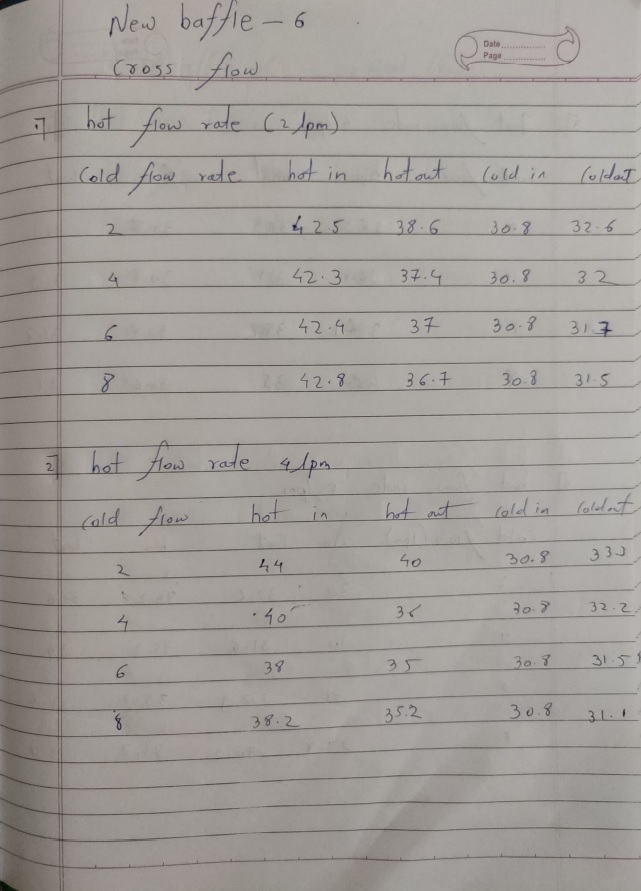 New baffle - 6
Date
Page
Cross flow
1) hot flow rate (2 lpm)
Cold flow rate hot in hot out Cold in Coldout
2 42.5 38.6 30.8 32.6
4 42.3 37.4 30.8 32
6 42.4 37 30.8 31.7
8 42.8 36.7 30.8 31.5
2) hot flow rate 4 lpm
Cold flow hot in hot out Cold in Coldout
2 44 40 30.8
4 40 30.8 32.2
6 38 35 30.8 31.5
8 38.2 35.2 30.8 31.1